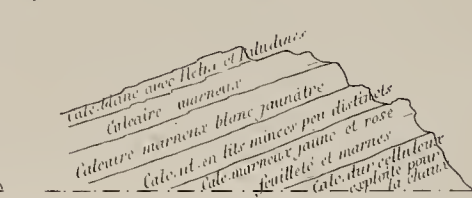 Calc. blanc avec Helix et Paludines
Calcaire marneux
Calcaire marneux blanc jaunâtre
Calc. nt. en lits minces peu distincts
Calc. marneux jaune et rose
feuilleté et marnes
Calc. dur celluleux
exploité pour
la chaux